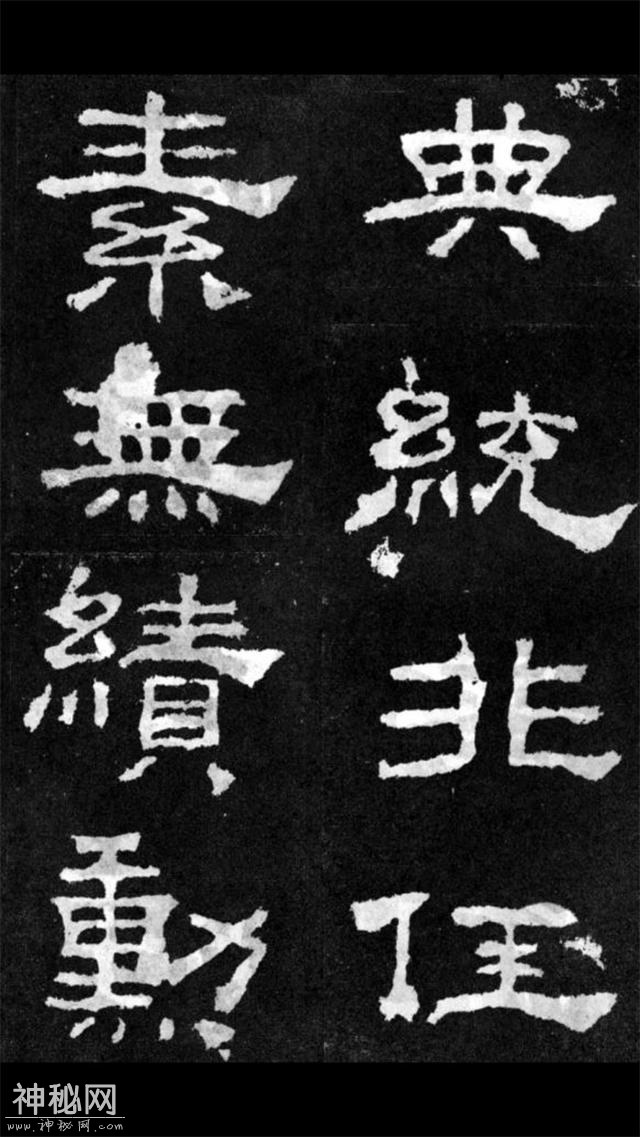 典統非任
素無績勳
神秘网
www.神秘网.com